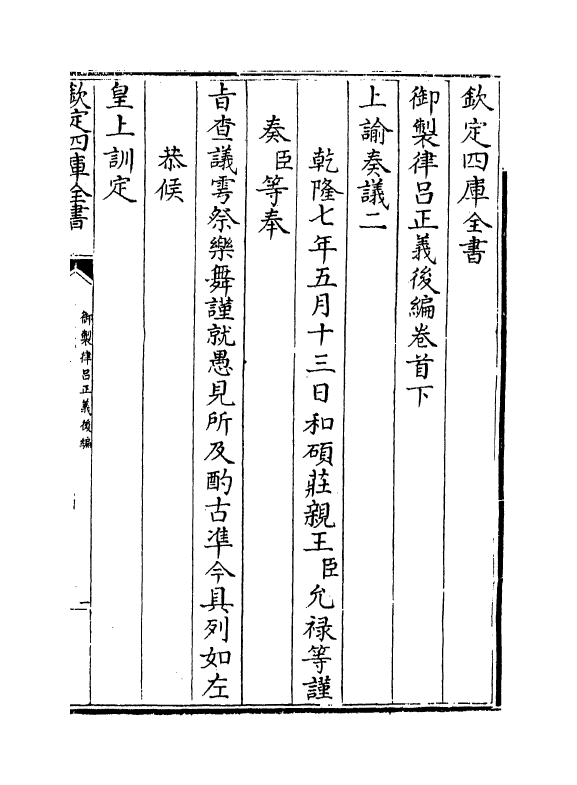 欽定四庫全書
御製律吕正義後編卷首下
上諭奏議二
乾隆七年五月十三日和碩莊親王臣允禄等謹
奏臣等奉
旨查議雩祭樂舞謹就愚見所及酌古準今具列如左
恭候
皇上訓定
欽定四庫全書
御製律吕正義後編
一